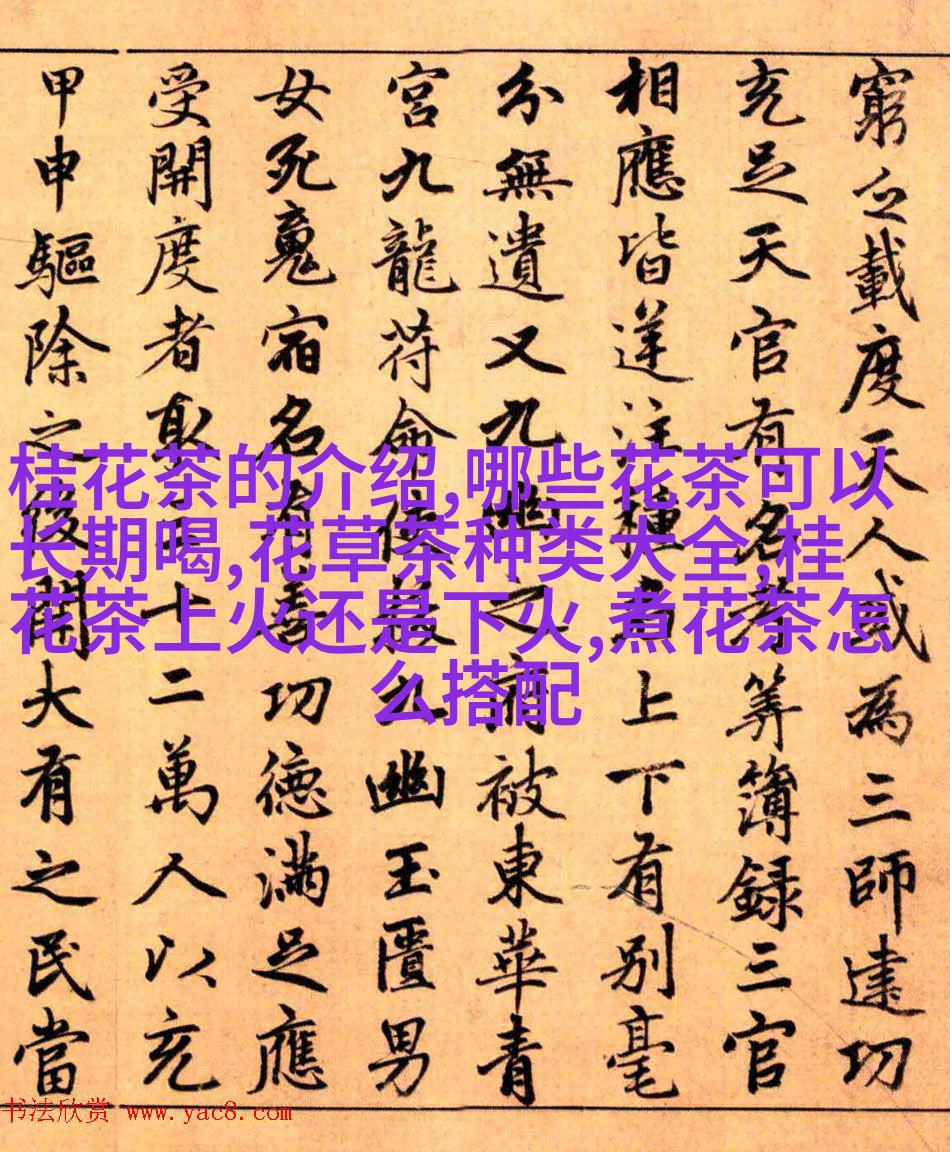 窮之載度天人為三師建功
充足天官有名者筭簿録三官
相應皆逆注種者上下有别毫
分無遺又九幽之府被東華青
宮九龍符命使拔九幽玉匱男
女死魂宿名有善功德滿足應
受開度者取三十二萬人以充
甲申驅除之後開大有之民當
桂花茶的介绍,哪些花茶可以
长期喝,花草茶种类大全,桂
花茶上火还是下火,煮花茶怎
么搭配
书法欣赏 www.yac8.com